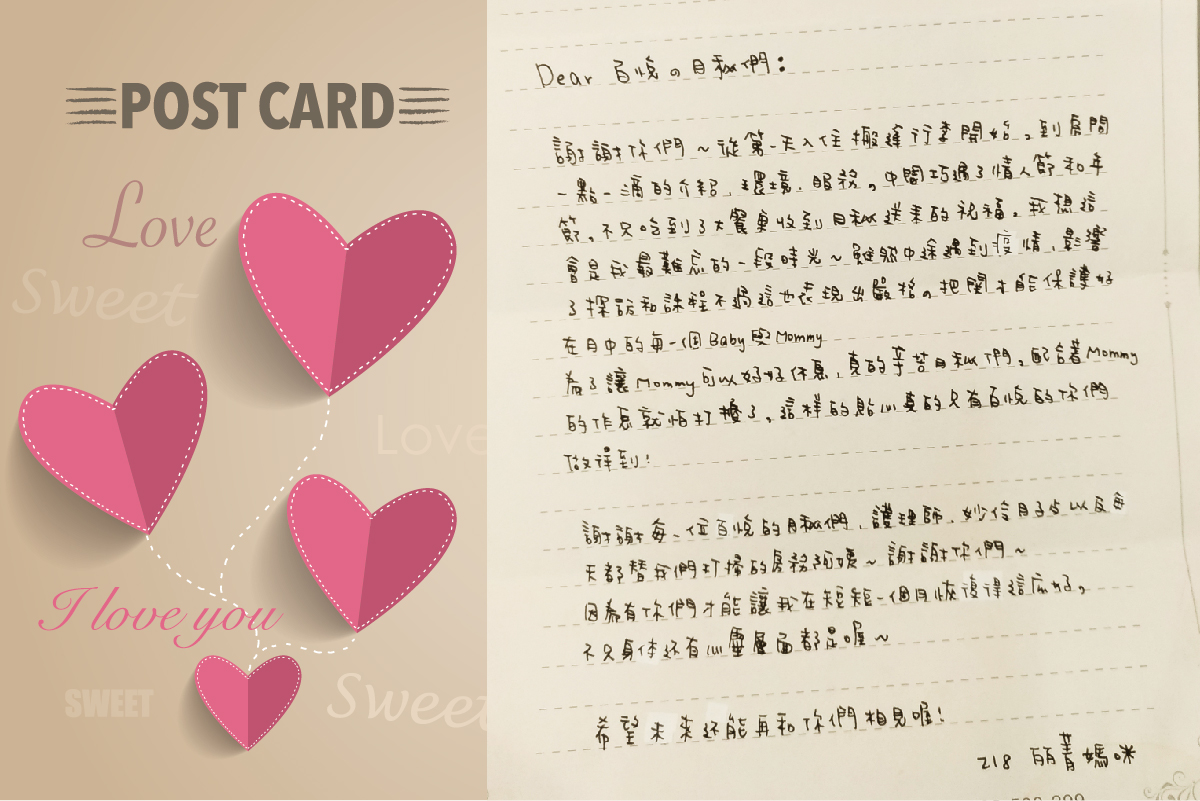 POST CARD
Love
Sweet
Love
I love you
SWEET
Sweet
Dear 百悅の月秘們：
謝謝你們～從第一天入住搬運行李開始，到房間
一點一滴的介紹、環境、服務。中間巧遇了情人節和年
節，不只吃到了大餐更收到月秘送来的祝福，我想這
會是我最難忘的一段時光～雖然中途遇到疫情，影響
了探訪和課程不過這也表現出嚴格。把關才能保護好
在月中的每一個Baby與Mommy
為了讓Mommy可以好好休息，真的辛苦月秘們，配合著Mommy
的作息就怕打擾了，這样的貼心真的只有百悅的你們
做得到！
謝謝每一位百悅的月秘們、護理師、妙信月子点以及每
天都替我們打掃的房務阿嬤～謝謝你們～
因為有你們才能讓我在短短一個月恢復得這麼好，
不只身体还有心靈層面都是喔～
希望未来还能再和你們相見喔！
218 萌菁媽咪